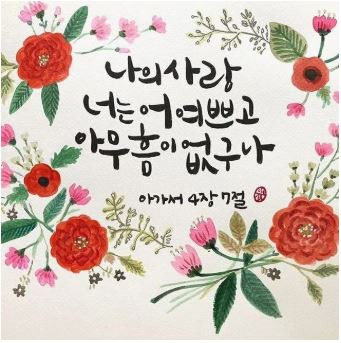 나의 사랑
너는 어여쁘고
아무 흠이 없구나
아가서 4장 7절